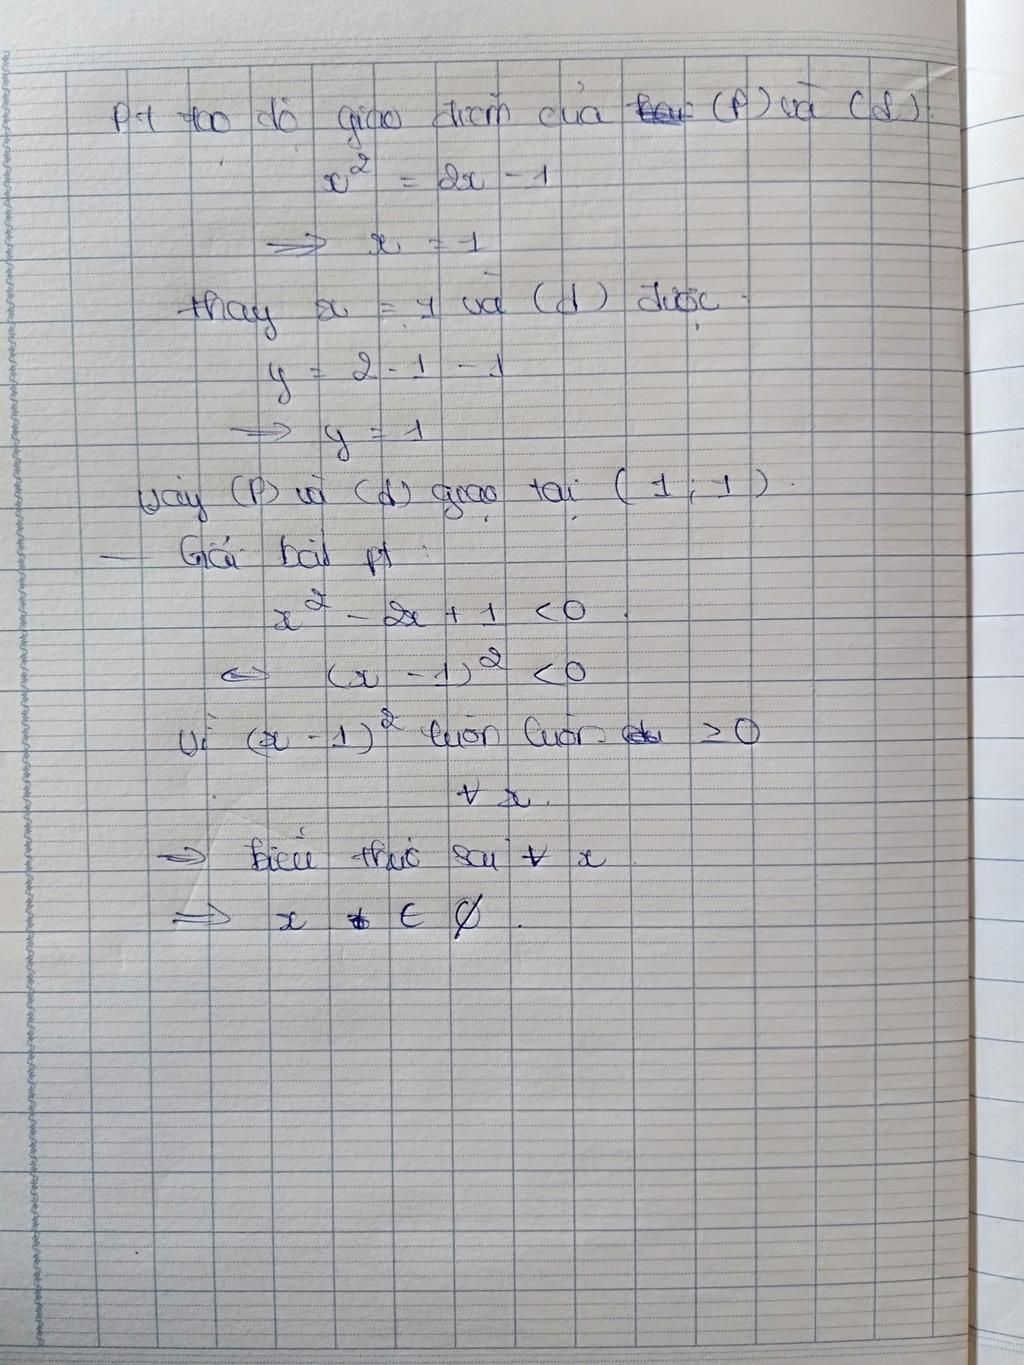 Pt toạ độ giao điểm của (P) và (d).
x² = 2x - 1
⇒ x = 1
thay x = 1 và (d) được.
y = 2 . 1 - 1
⇒ y = 1
vậy (P) và (d) giao tại (1; 1).
— Giải bất pt:
x² - 2x + 1 < 0.
⇔ (x - 1)² < 0
Vì (x - 1)² luôn luôn ≥ 0
∀ x.
⇒ biểu thức sai ∀ x
⇒ x ∈ ∅.